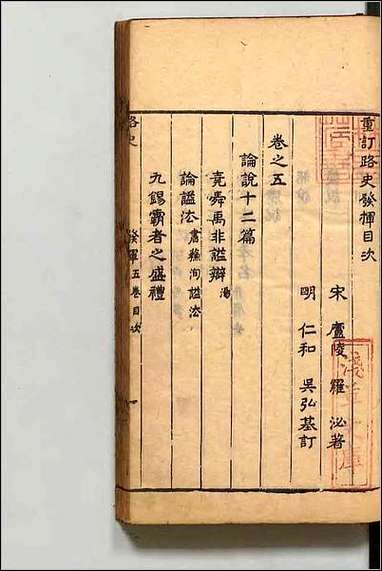 重訂路史發揮目次
宋 廬陵 羅 泌著
明 仁和 吳弘基訂
卷之五
論說十二篇
堯舜禹非謚辯 湯
論謚法 蘇洵謚法
九錫霸者之盛禮
路史
發揮五卷目次
一